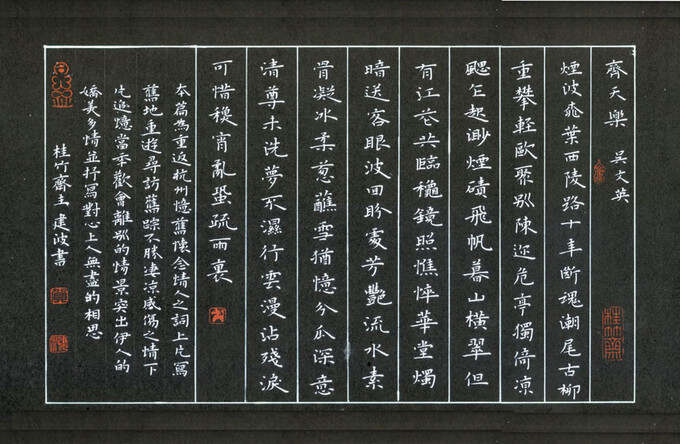 齊天樂 吳文英
煙波桃葉西陵路十年斷魂潮尾古柳
重攀輕歐聚別陳迹危亭獨倚涼
颸乍起渺煙磧飛帆暮山橫翠但
有江花共臨穐鏡照憔悴華堂燭
暗送客眼波回盼處芳艷流水素
骨凝冰柔蔥蘸雪猶憶分瓜深意
清尊未洗夢不濕行雲漫沾殘淚
可惜穐宵亂蛩疏雨裏
本篇為重返杭州憶舊懷念情人之詞上片寫
舊地重遊尋訪舊踪不勝淒涼感傷之情下
片追憶當年歡會離別的情景突出伊人的
嬌美多情並抒寫對心上人無盡的相思
桂竹齋主 建波書
桂竹齋